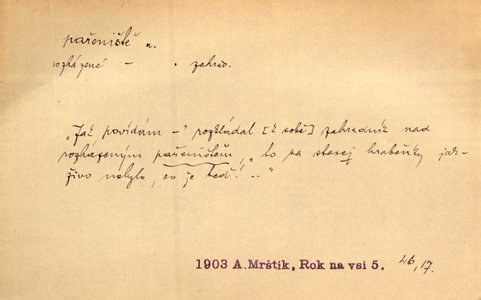 pařeniště n.
rozházené – . zahrad.
„Jak povídám –“ rozkládal [k sobě] zahradník nad
rozházeným pařeništěm, „to za starej hraběnky jak-
živo nebylo, co je teď! . .“
1903 A. Mrštík, Rok na vsi 5. 46,17.